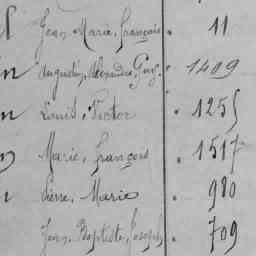 Jean Marie, françois. 11
Augustin, Alexandre, . 1409
Louis, Victor . 1255
Marie, françois . 1517
Pierre, Marie . 980
Jean, Baptiste, Joseph. . 709